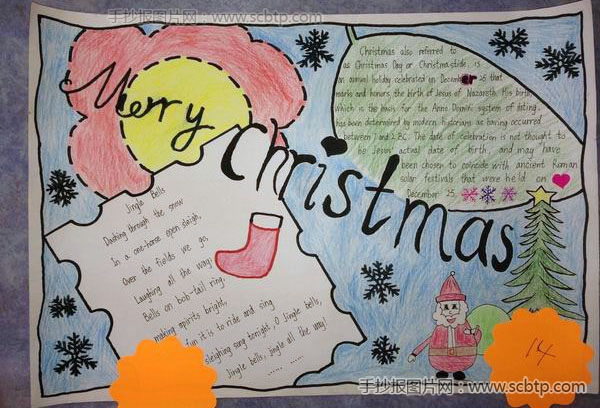 手抄报图片网-www.scbtp.com
Merry
Christmas
Christmas also referred to
as Christmas Day or Christmastide, is
an annual holiday celebrated on December 25 that
marks and honors the birth of Jesus of Nazareth. His birth,
which is the basis for the Anno Domini system of dating,
has been determined by modern historians as having occurred
between 7 and 2 BC. The date of celebration is not thought to
be Jesus' actual date of birth, and may have
been chosen to coincide with ancient Roman
solar festivals that were held on
December 25.
Jingle Bells
Dashing through the snow
In a one-horse open sleigh,
Over the fields we go,
Laughing all the way;
Bells on bob-tail ring,
making spirits bright,
fun it is to ride and sing
sleighing song tonight, O Jingle bells,
Jingle bells, jingle all the way!
...... ......
14
手抄报图片网-www.scbtp.com